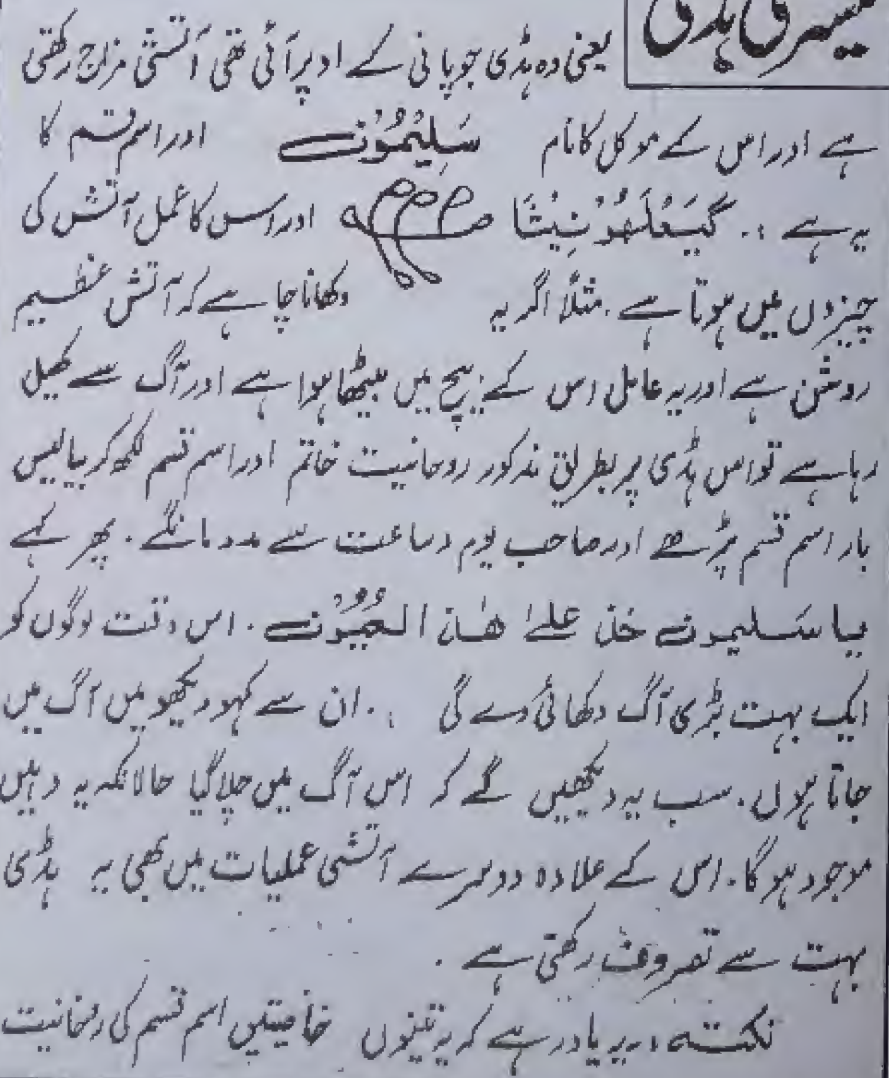 تیسری ہڈی
یعنی وہ ہڈی جو پانی کے اوپر آئی تھی آتشی مزاج رکھتی
ہے اور اس کے موکل کا نام سَلِیْمُوْنُ اور اسم قسم کا
یہ ہے :. اور اس کا عمل آتش کی
چیزوں میں ہوتا ہے . مثلاً اگر یہ دکھانا چاہے کہ آتش عظیم
روشن ہے اور یہ عامل اس کے بیچ میں بیٹھا ہوا ہے اور آگ سے کھیل
رہا ہے تو اس ہڈی پر بطریق مذکور روحانیت خاتم اور اسم قسم لکھ کر بیالیس
بار اسم قسم پڑھے اور صاحب یوم و ساعت سے مدد مانگے . پھر کہے
یا سَلیمون خذ علیٰ ھٰذہ العُیُوْن . اس وقت لوگوں کو
ایک بہت بڑی آگ دکھائی دے گی :. ان سے کہو دیکھو میں آگ میں
جاتا ہوں . سب یہ دیکھیں گے کہ اس آگ میں چلا گیا حالانکہ یہ وہیں
موجود ہو گا . اس کے علاوہ دوسرے آتشی عملیات میں بھی یہ ہڈی
بہت سے تصروف رکھتی ہے .
نکتہ :. یہ یاد رہے کہ یہ تینوں خاصیتیں اسم قسم کی روحانیت